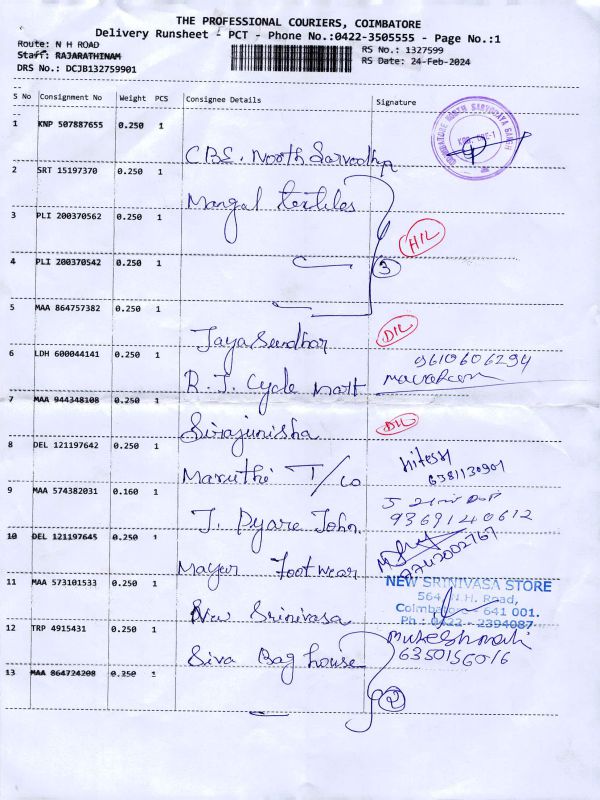 THE PROFESSIONAL COURIERS, COIMBATORE
Delivery Runsheet - PCT - Phone No.:0422-3505555 - Page No.:1
Route: N H ROAD RS No.: 1327599
Staff: RAJARATHINAM RS Date: 24-Feb-2024
DRS No.: DCJB132759901
S No Consignment No Weight PCS Consignee Details Signature
1 KNP 507887655 0.250 1
CBE. North Sarvodhya
2 SRT 15197370 0.250 1
Mangal textiles
3 PLI 200370562 0.250 1
4 PLI 200370542 0.250 1 3
5 MAA 864757382 0.250 1
Jaya Sundhar
6 LDH 600044141 0.250 1 9619606294
R. J. Cycle Mart
7 MAA 944348108 0.250 1
Sirajunisha
8 DEL 121197642 0.250 1 Hitesh
Maruthi T/co 6381130901
9 MAA 574382031 0.160 1
J. Pyare John. 9369140612
10 DEL 121197645 0.250 1
Mayur Footwear
11 MAA 573101533 0.250 1 NEW SRINIVASA STORE
564, N.H. Road,
New Srinivasa Coimbatore - 641 001.
Ph : 0422 - 2394087
12 TRP 4915431 0.250 1
Siva Bag house 6350156016
13 MAA 864724208 0.250 1
2